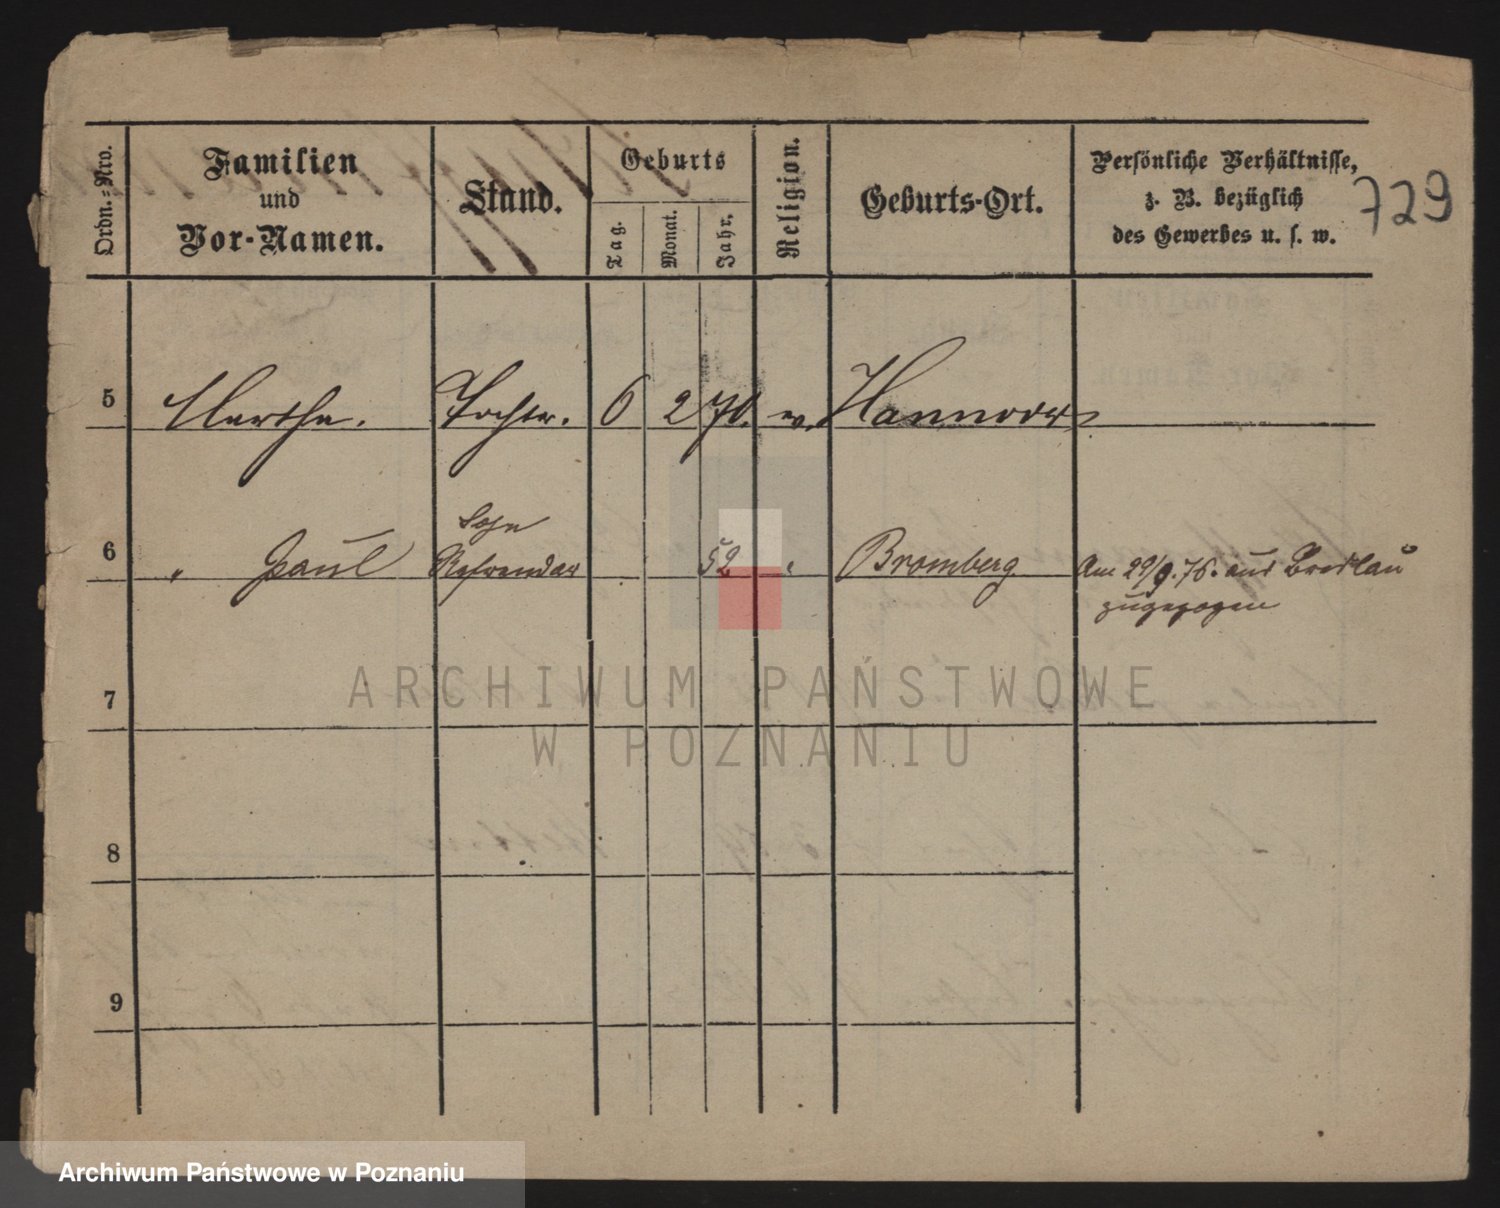 Ordn.-Nro. Familien und Vor-Namen. Stand. Geburts Tag. Monat. Jahr. Religion. Geburts-Ort. Persönliche Verhältnisse, z. B. bezüglich des Gewerbes u. s. w. 729
5 Martha. Tochter. 6 2 70. ev. Hannover
6 " Paul Sohn Referendar 52 " Bromberg Am 29/9. 76. aus Breslau zugezogen
7
8
9
ARCHIWUM PAŃSTWOWE
W POZNANIU
Archiwum Państwowe w Poznaniu